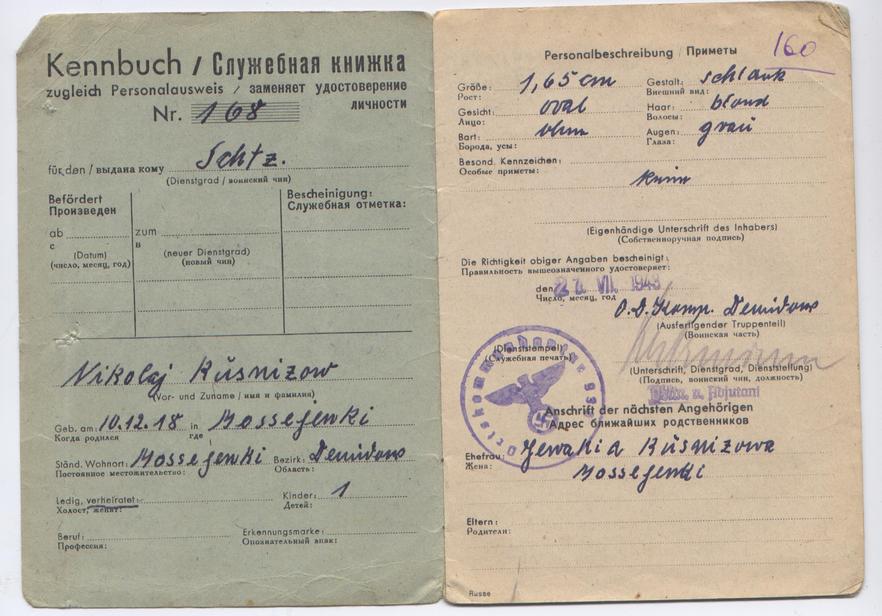 Kennbuch / Служебная книжка
zugleich Personalausweis / заменяет удостоверение
личности
Nr. 168
für den / выдана кому Schtz.
(Dienstgrad / воинский чин)
Befördert
Произведен
Bescheinigung:
Служебная отметка:
ab zum
с в
(Datum) (neuer Dienstgrad)
(число, месяц, год) (новый чин)
Nikolaj Kusnizow
(Vor- und Zuname / имя и фамилия)
Geb. am: 10.12.18 in Mossejenki
Когда родился где
Ständ. Wohnort: Mossejenki Bezirk: Demidow
Постоянное местожительство: Область:
Ledig, verheiratet: Kinder: 1
Холост, женат: Детей:
Beruf: Erkennungsmarke:
Профессия: Опознавательный знак:
Personalbeschreibung / Приметы 160
Größe: 1,65 cm Gestalt: schlank
Рост: Внешний вид:
Gesicht: oval Haar: blond
Лицо: Волосы:
Bart: ohne Augen: grau
Борода, усы: Глаза:
Besond. Kennzeichen:
Особые приметы:
keine
(Eigenhändige Unterschrift des Inhabers)
(Собственноручная подпись)
Die Richtigkeit obiger Angaben bescheinigt:
Правильность вышеозначенного удостоверяет:
den 27. VII. 1943
Число, месяц, год
O.D. Komp. Demidow
(Ausfertigender Truppenteil)
(Воинская часть)
(Dienststempel)
(Служебная печать)
Ortskommandantur
(Unterschrift, Dienstgrad, Dienststellung)
(Подпись, воинский чин, должность)
u. Adjutant
Anschrift der nächsten Angehörigen
Адрес ближайших родственников
Ehefrau: Kusnizowa
Жена: Mossejenki
Eltern:
Родители:
Russe